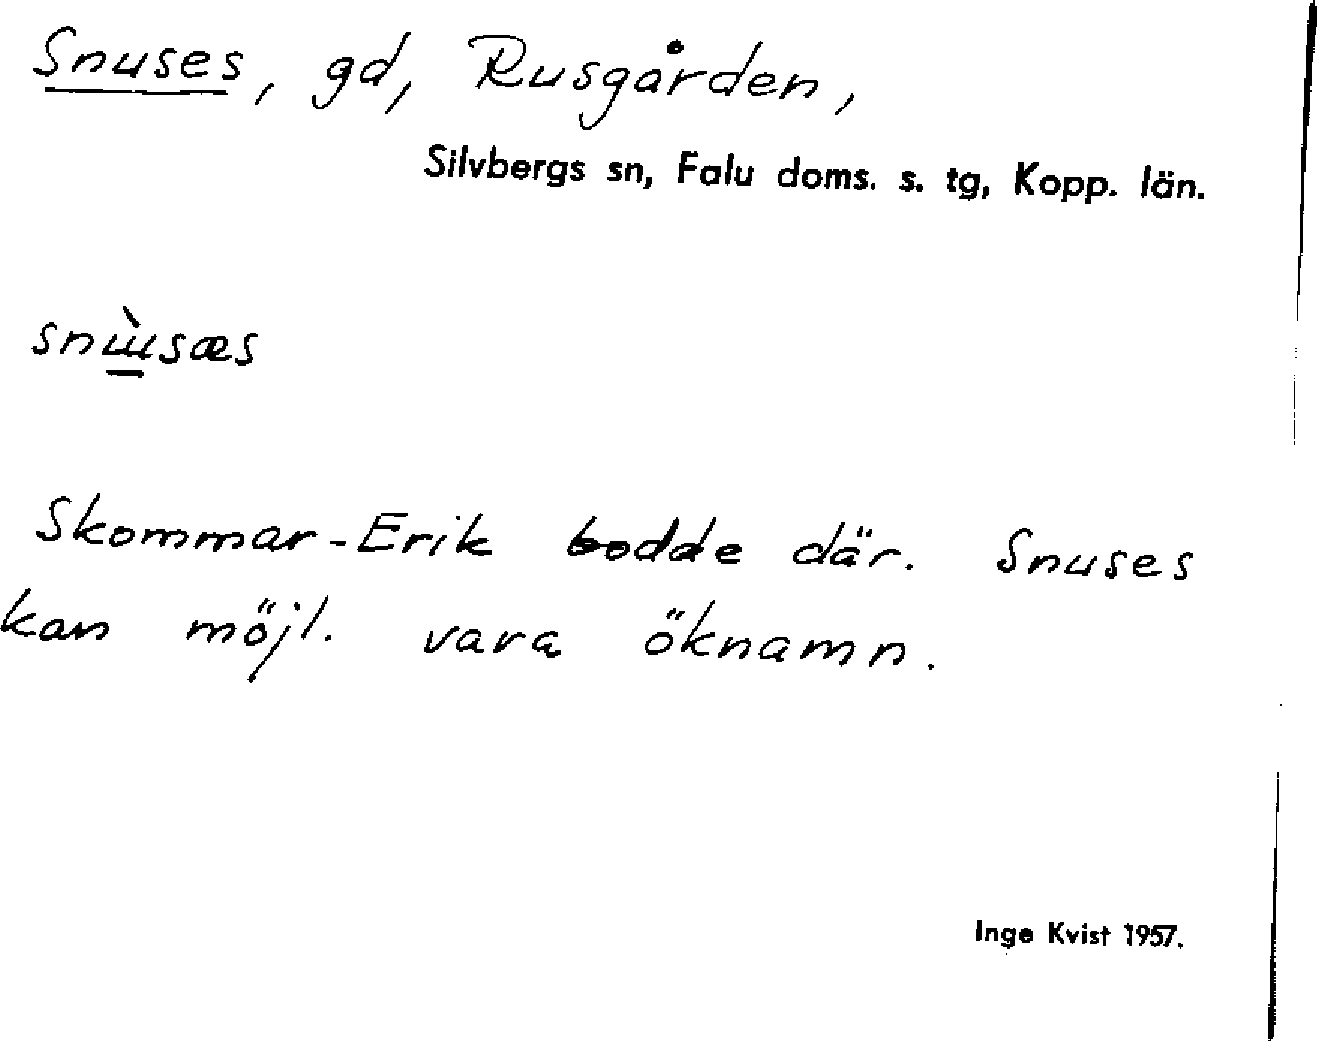 Snuses, gd, Rusgården,
Silvbergs sn, Falu doms. s. tg, Kopp. län.
snɯ̀sæs
Skommar-Erik bodde där. Snuses
kan möjl. vara öknamn.
Inge Kvist 1957.